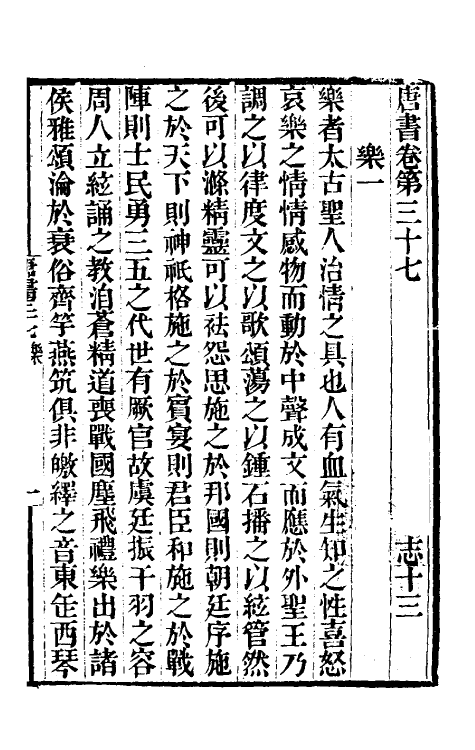 唐書卷第三十七 志十三
樂一
樂者太古聖人治情之具也人有血氣生知之性喜怒
哀樂之情情感物而動於中聲成文而應於外聖王乃
調之以律度文之以歌頌蕩之以鍾石播之以絃管然
後可以滌精靈可以祛怨思施之於邦國則朝廷序施
之於天下則神祇格施之於賓宴則君臣和施之於戰
陣則士民勇三五之代世有厥官故虞廷振干羽之容
周人立絃誦之教洎蒼精道喪戰國塵飛禮樂出於諸
侯雅頌淪於衰俗齊竽燕筑俱非皦繹之音東缶西琴
唐書三七樂 一